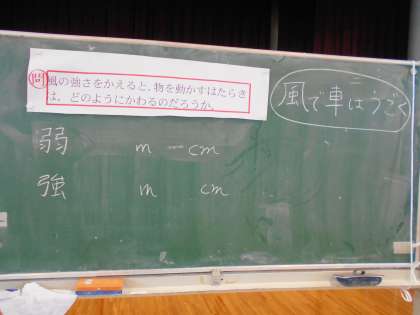 問 風の強さをかえると、物を動かすはたらき
は、どのようにかわるのだろうか。
風で車はうごく
弱 m cm
強 m cm